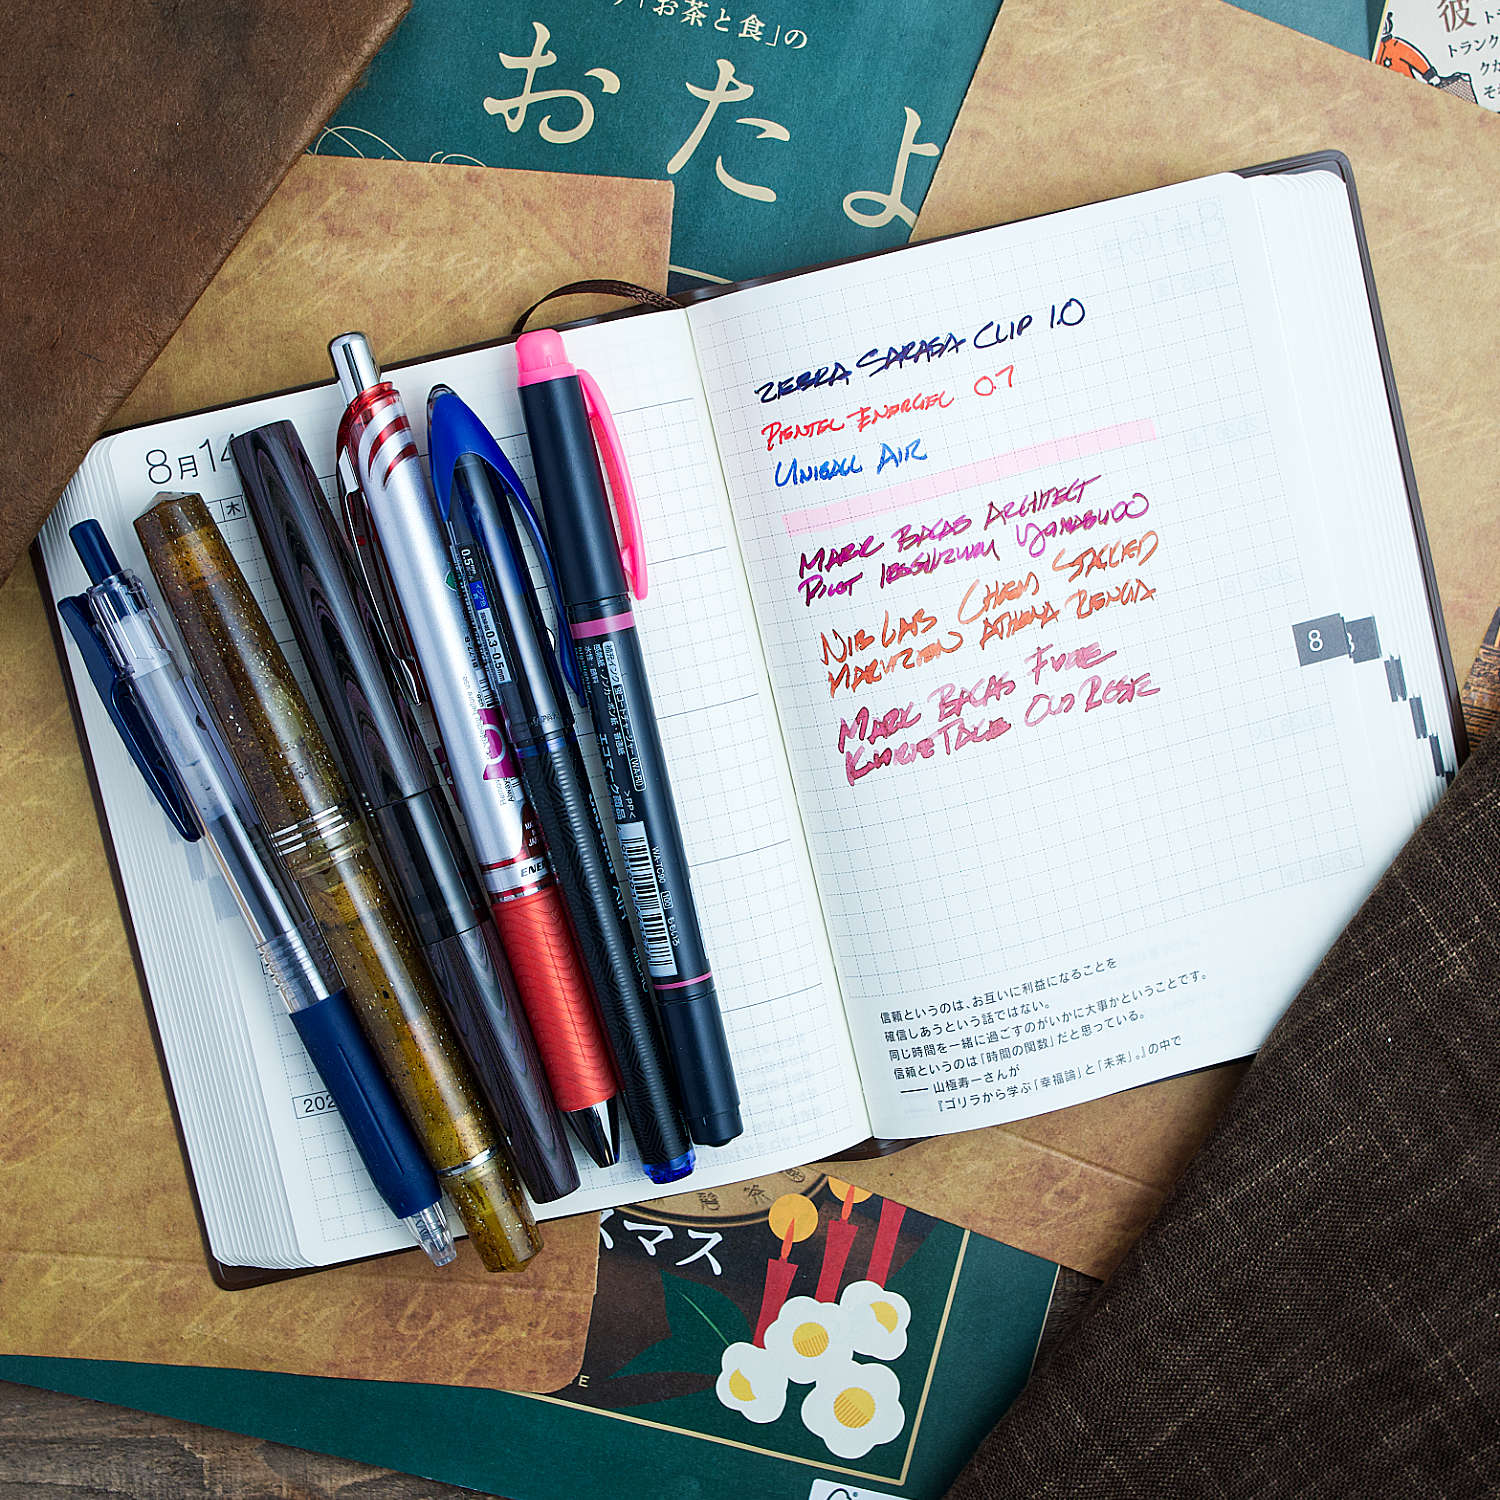 「お茶と食」の
おたよ
彼
トランク
8月14
木
ZEBRA SARASA CLIP 1.0
PENTEL ENERGEL 0.7
UNIBALL AIR
MARK BACAS ARCHITECT
PILOT IROSHIZUKU YAMABUDO
NIB LAB CHEM STACKED
MARUZEN ATHENA
MARK BACAS FUDE
OLD ROSE
8
0.5
0.3-0.5mm
エコマーク商品
>PP<
WA-TC90
信頼というのは、お互いに利益になることを
確信しあうという話ではない。
同じ時間を一緒に過ごすのがいかに大事かということです。
信頼というのは「時間の関数」だと思っている。
―― 山極寿一さんが
『ゴリラから学ぶ「幸福論」と「未来」。』の中で
202
スマス